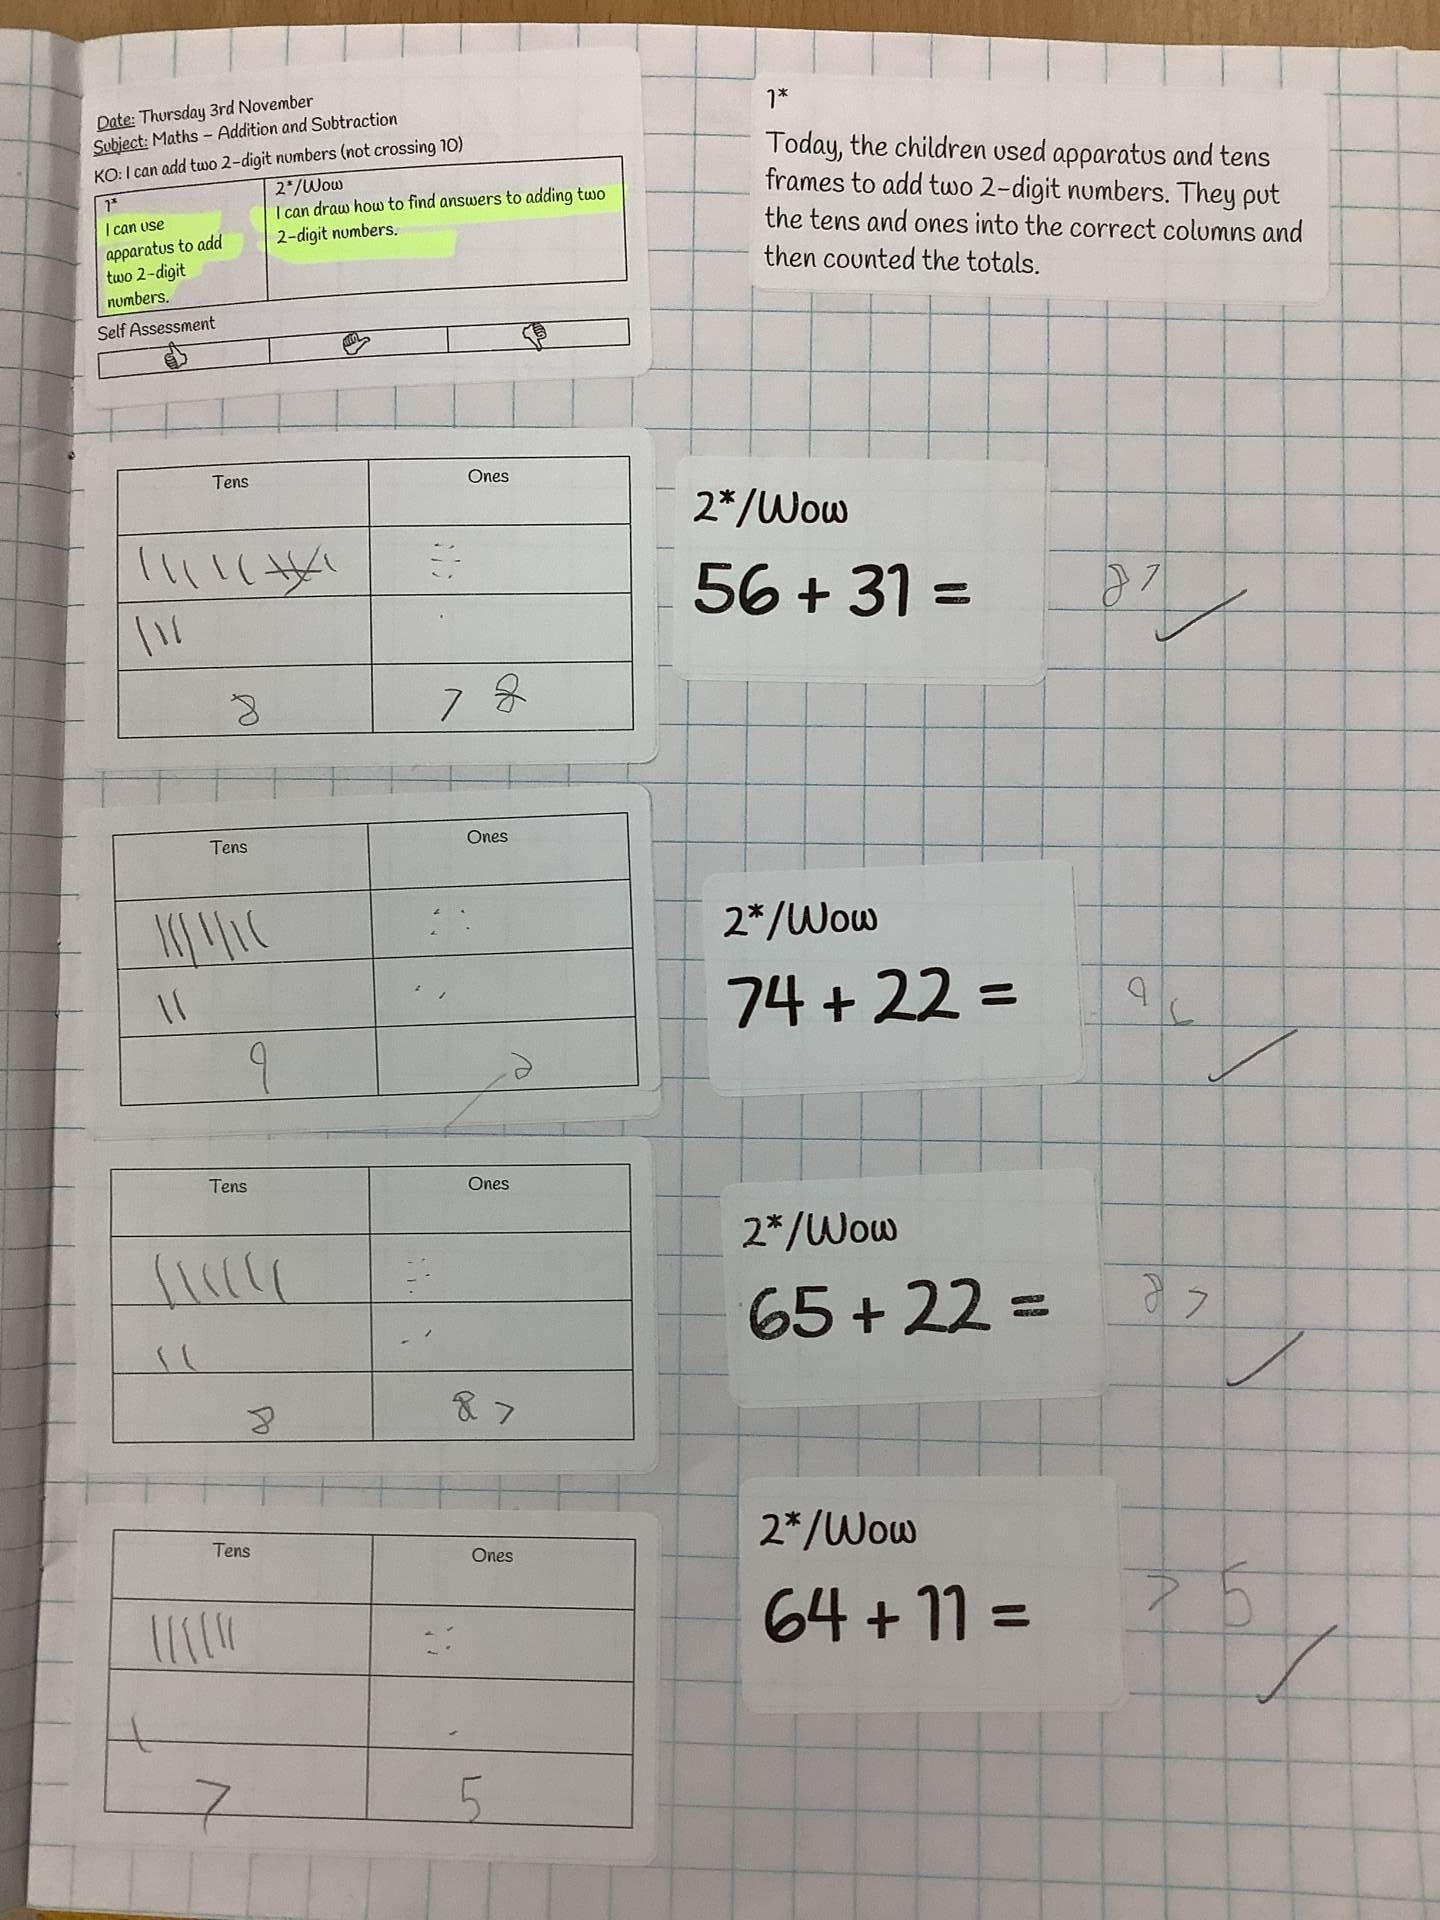 Date: Thursday 3rd November
Subject: Maths – Addition and Subtraction
KO: I can add two 2-digit numbers (not crossing 10)
1*
I can use
apparatus to add
two 2-digit
numbers.
2*/Wow
I can draw how to find answers to adding two
2-digit numbers.
Self Assessment
1*
Today, the children used apparatus and tens
frames to add two 2-digit numbers. They put
the tens and ones into the correct columns and
then counted the totals.
Tens Ones
8 7 8
2*/Wow
56 + 31 = 87
Tens Ones
9
2*/Wow
74 + 22 = 96
Tens Ones
8 8 7
2*/Wow
65 + 22 = 87
Tens Ones
7 5
2*/Wow
64 + 11 = 75